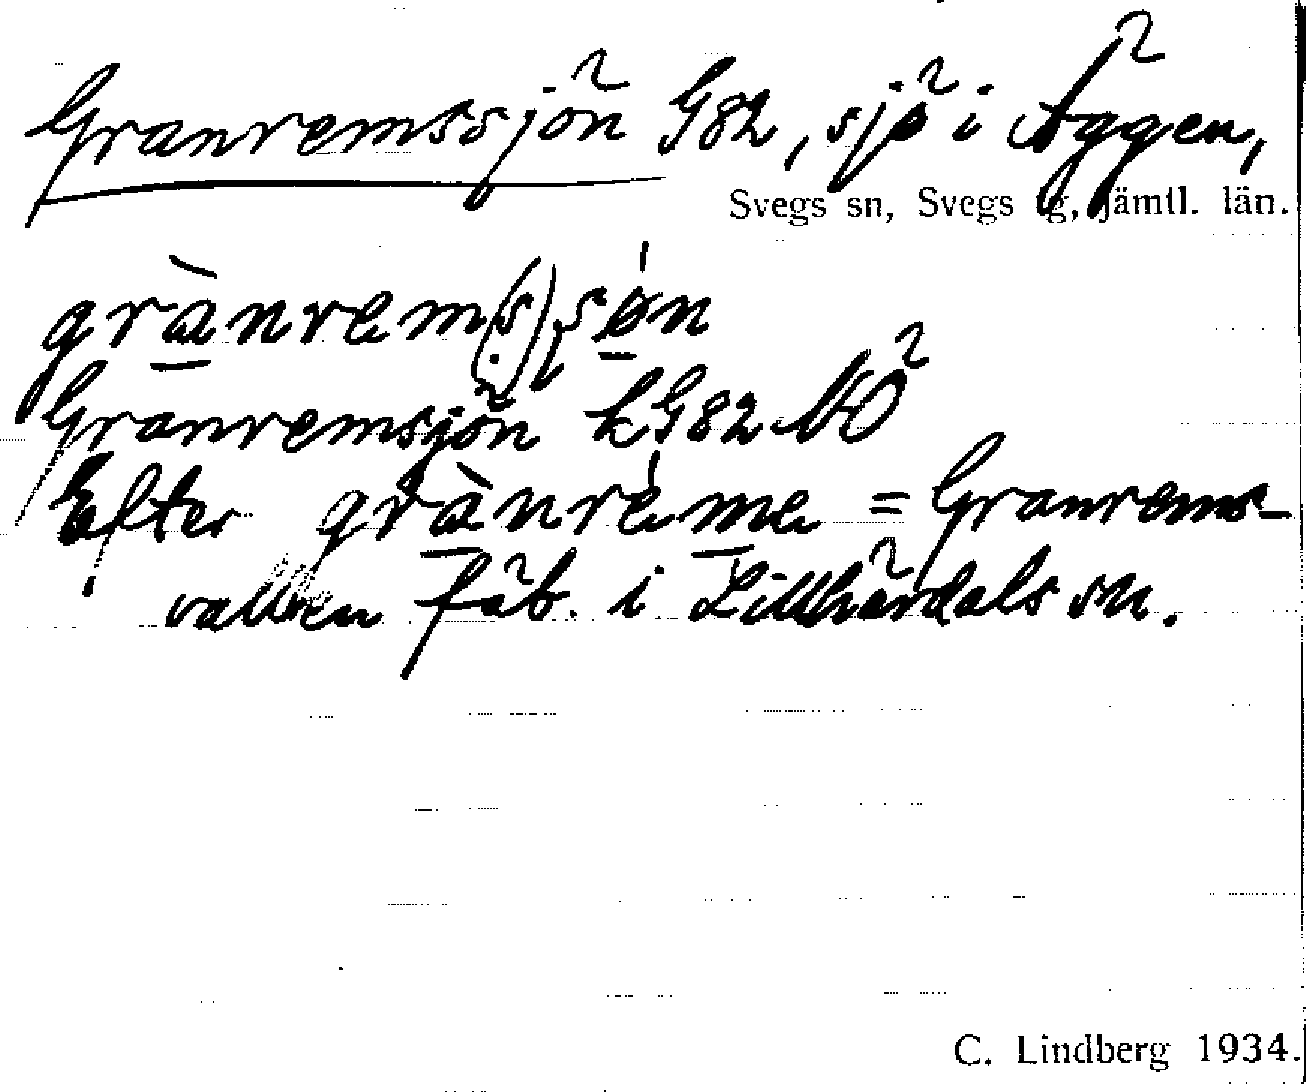 Granremssjön G82, sjö i Äggen,
Svegs sn, Svegs tg, Jämtl. län.
grànrem(s)søn
Granremsjön kG82 NO
Efter grànréme = Granrems-
vallen fäb. i Lillhärdals sn.
C. Lindberg 1934.